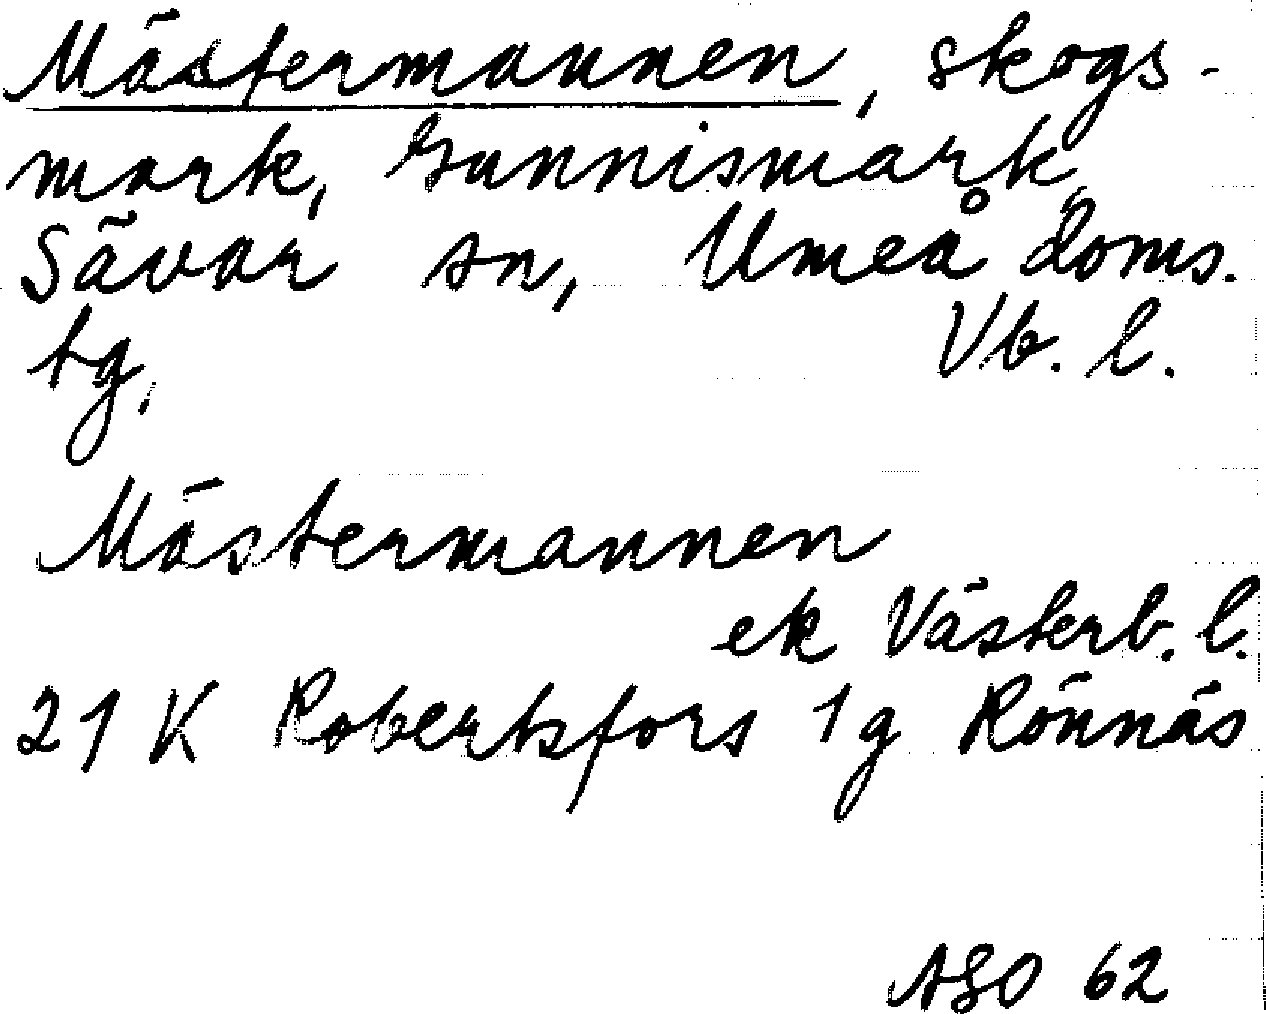 Mästermannen, skogs-
mark, Gunnismark,
Sävar sn, Umeå doms.
tg, Vb. l.
Mästermannen
ek Västerb. l.
21 K Robertsfors 1g Rönnäs
ASO 62